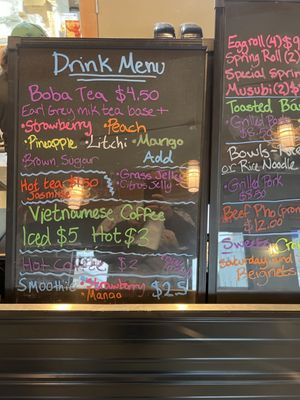 Drink Menu
Boba Tea $4.50
Earl Grey milk tea base +
• Strawberry • Peach
• Pineapple • Litchi • Mango
• Brown Sugar
Add
• Grass Jelly
• Citrus Jelly
Hot tea
Jasmine
Vietnamese Coffee
Iced $5 Hot $3
Hot Coffee $2
Smoothie Strawberry
• Mango
Eggroll (4) $9
Spring Roll (2)
Special Spri
Musubi (2)
Toasted Ba
• Grilled Pork
Bowls - Rice
or Rice Noodle
• Grilled Pork
Beef Pho (from
$12.00
Sweets
Saturday and
Beignets